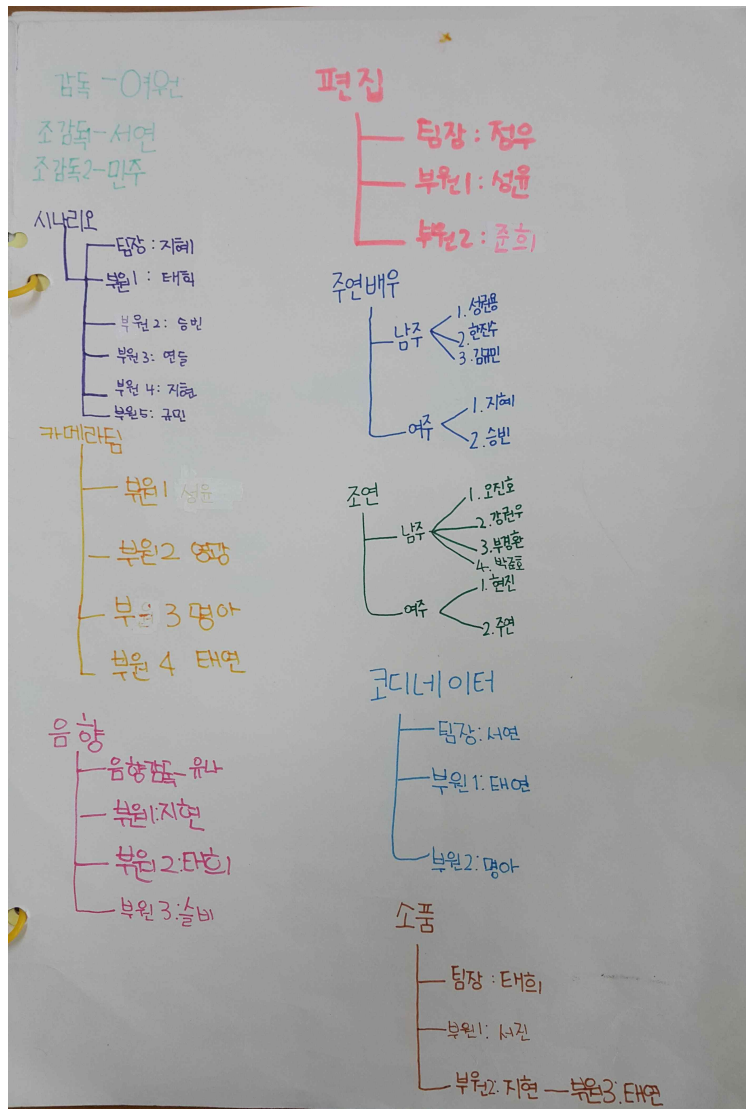 감독 - 여원
조감독 - 서연
조감독2 - 민주
시나리오
팀장 : 지혜
부원1 : 태희
부원2 : 승빈
부원3 : 연슬
부원4 : 지현
부원5 : 규민
카메라팀
부원1 성윤
부원2 영광
부원3 명아
부원4 태연
음향
음향감독 - 유나
부원1:지현
부원2:태희
부원3:슬비
편집
팀장 : 정우
부원1 : 성윤
부원2 : 준희
주연배우
남주
1. 성권용
2. 한진수
3. 김규민
여주
1. 지혜
2. 승빈
조연
남주
1. 오진호
2. 강권우
3. 부경환
4. 박준호
여주
1. 현진
2. 주연
코디네이터
팀장:서연
부원1:태연
부원2:명아
소품
팀장 : 태희
부원1 : 서진
부원2:지현 — 부원3:태연